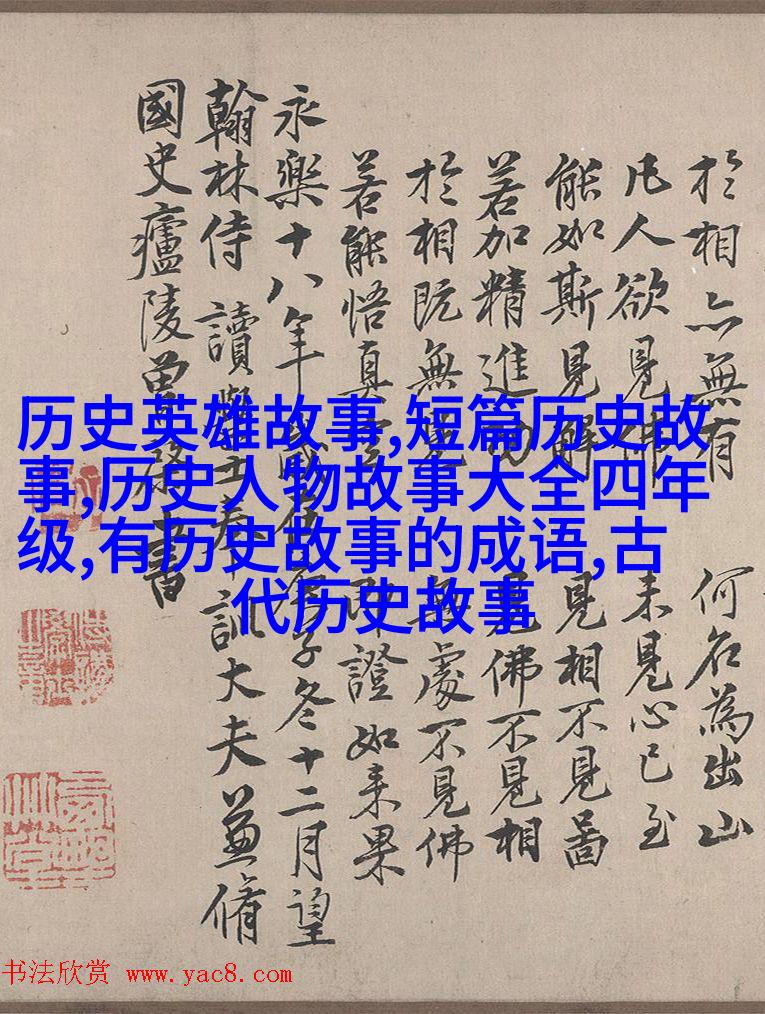 於相亦無有 何名為出山
凡人欲見佛 未見心已至
能如斯見解 見相不見啚
若加精進功 見佛不見相
於相既無 處不見佛
若能悟真空 即證如来果
永樂十八年歲在庚子冬十二月望
翰林侍讀學士奉訓大夫兼脩
國史廬陵曾棨書
历史英雄故事,短篇历史故
事,历史人物故事大全四年
级,有历史故事的成语,古
代历史故事
书法欣赏 www.yac8.com